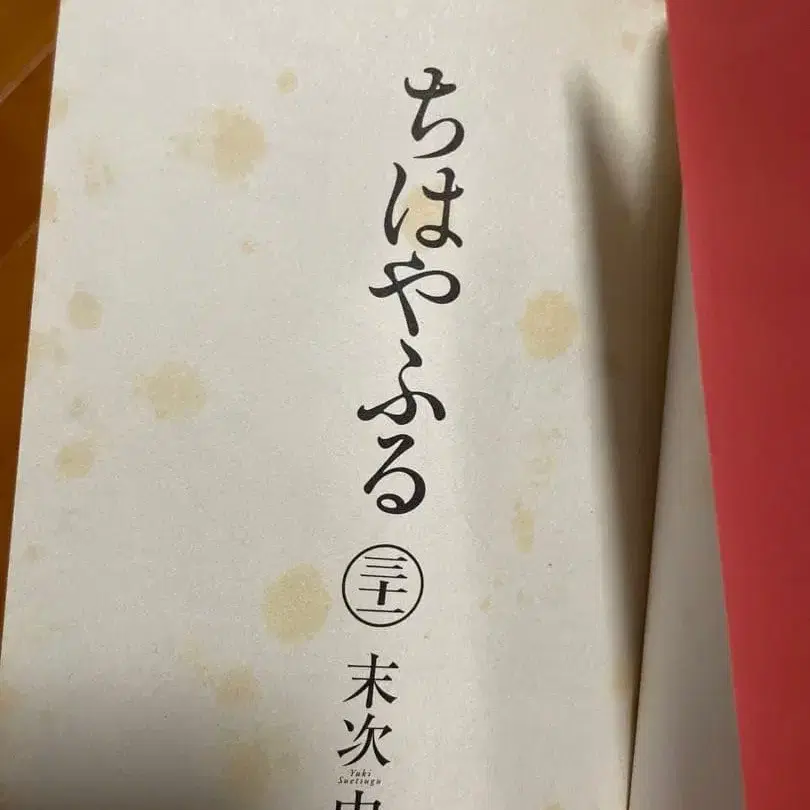 ちはやふる
三十一
末次
Yuki
Suetsugu